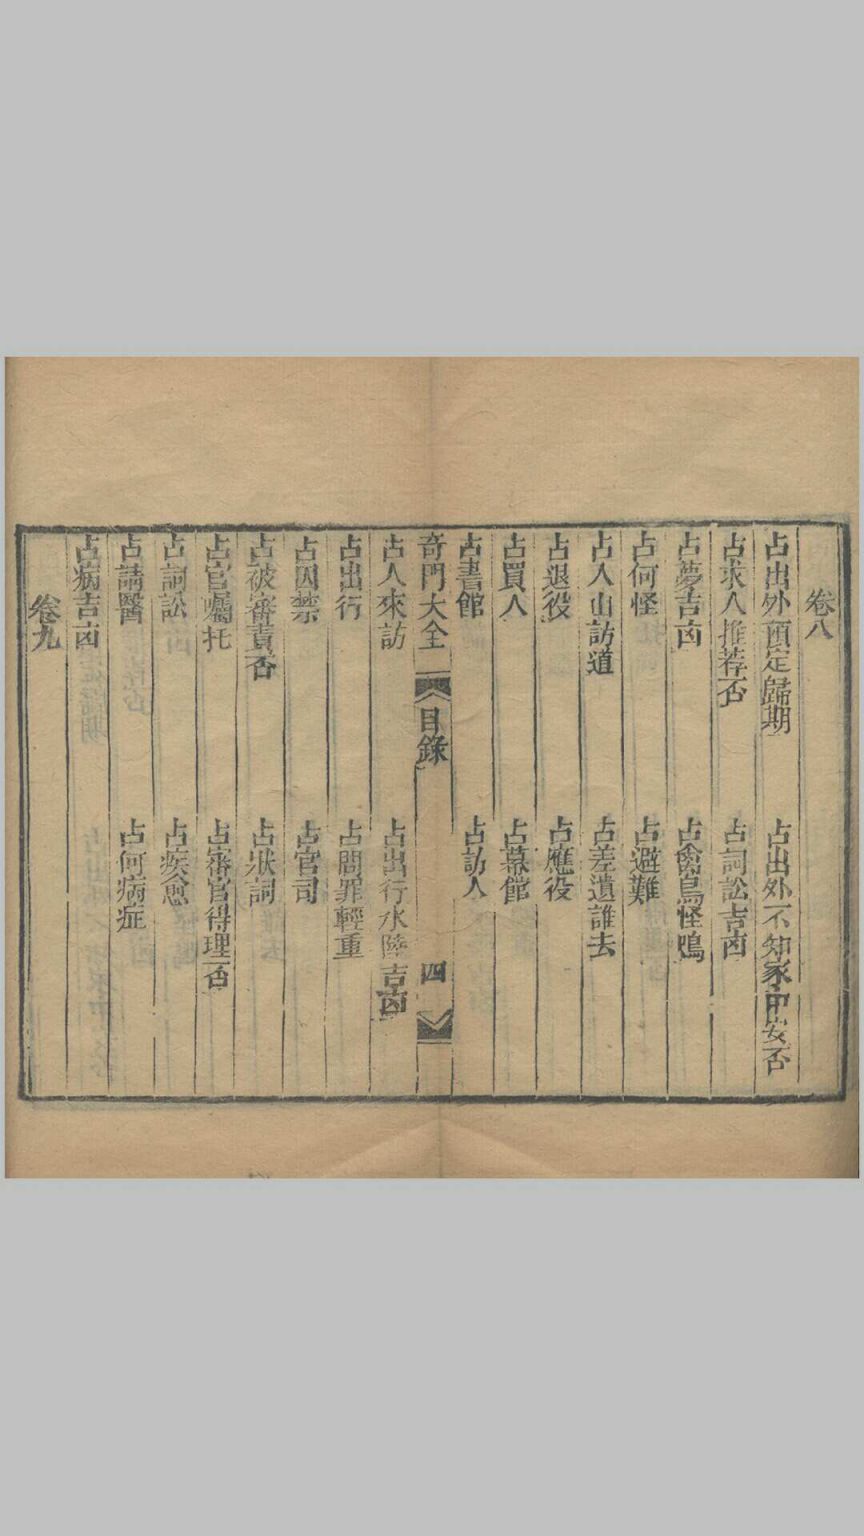 卷八
占出外預定歸期 占出外不知家中安否
占求人推荐否 占詞訟吉凶
占夢吉凶 占禽鳥怪鳴
占何怪 占避難
占入山訪道 占差遣誰去
占退役 占應役
占買人 占幕館
占書館 占訪人
奇門大全 目錄 四
占人來訪 占出行水陸吉凶
占出行 占問罪輕重
占囚禁 占官司
占被審責否 占狀詞
占官囑托 占審官得理否
占詞訟 占疾愈
占請醫 占何病症
占病吉凶
卷九